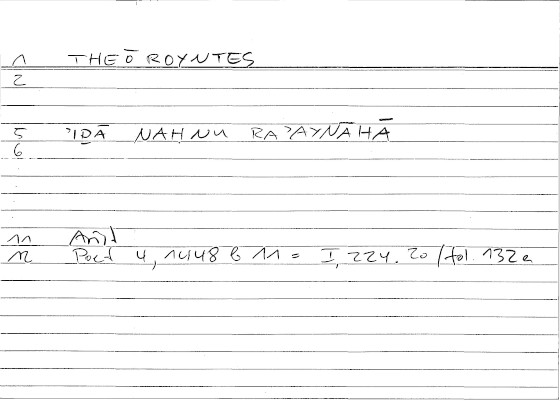 1 THEŌROYNTES
2
5 'IḎĀ NAḤNU RA'AYNĀHĀ
6
11 Arist
12 Poet 4, 1448 b 11 = I, 224.20 / fol. 132a